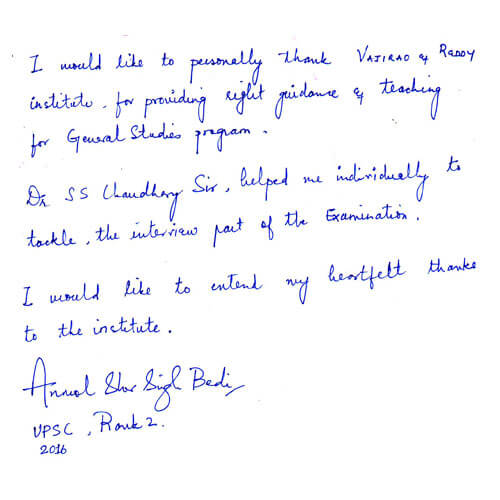 I would like to personally thank VAJIRAO & REDDY
institute, for providing right guidance & teaching
for General Studies program.
Dr SS Chaudhary Sir, helped me individually to
tackle, the interview part of the Examination.
I would like to entend my heartfelt thanks
to the institute.
Anmol Sher Singh Bedi
UPSC, Rank 2.
2016